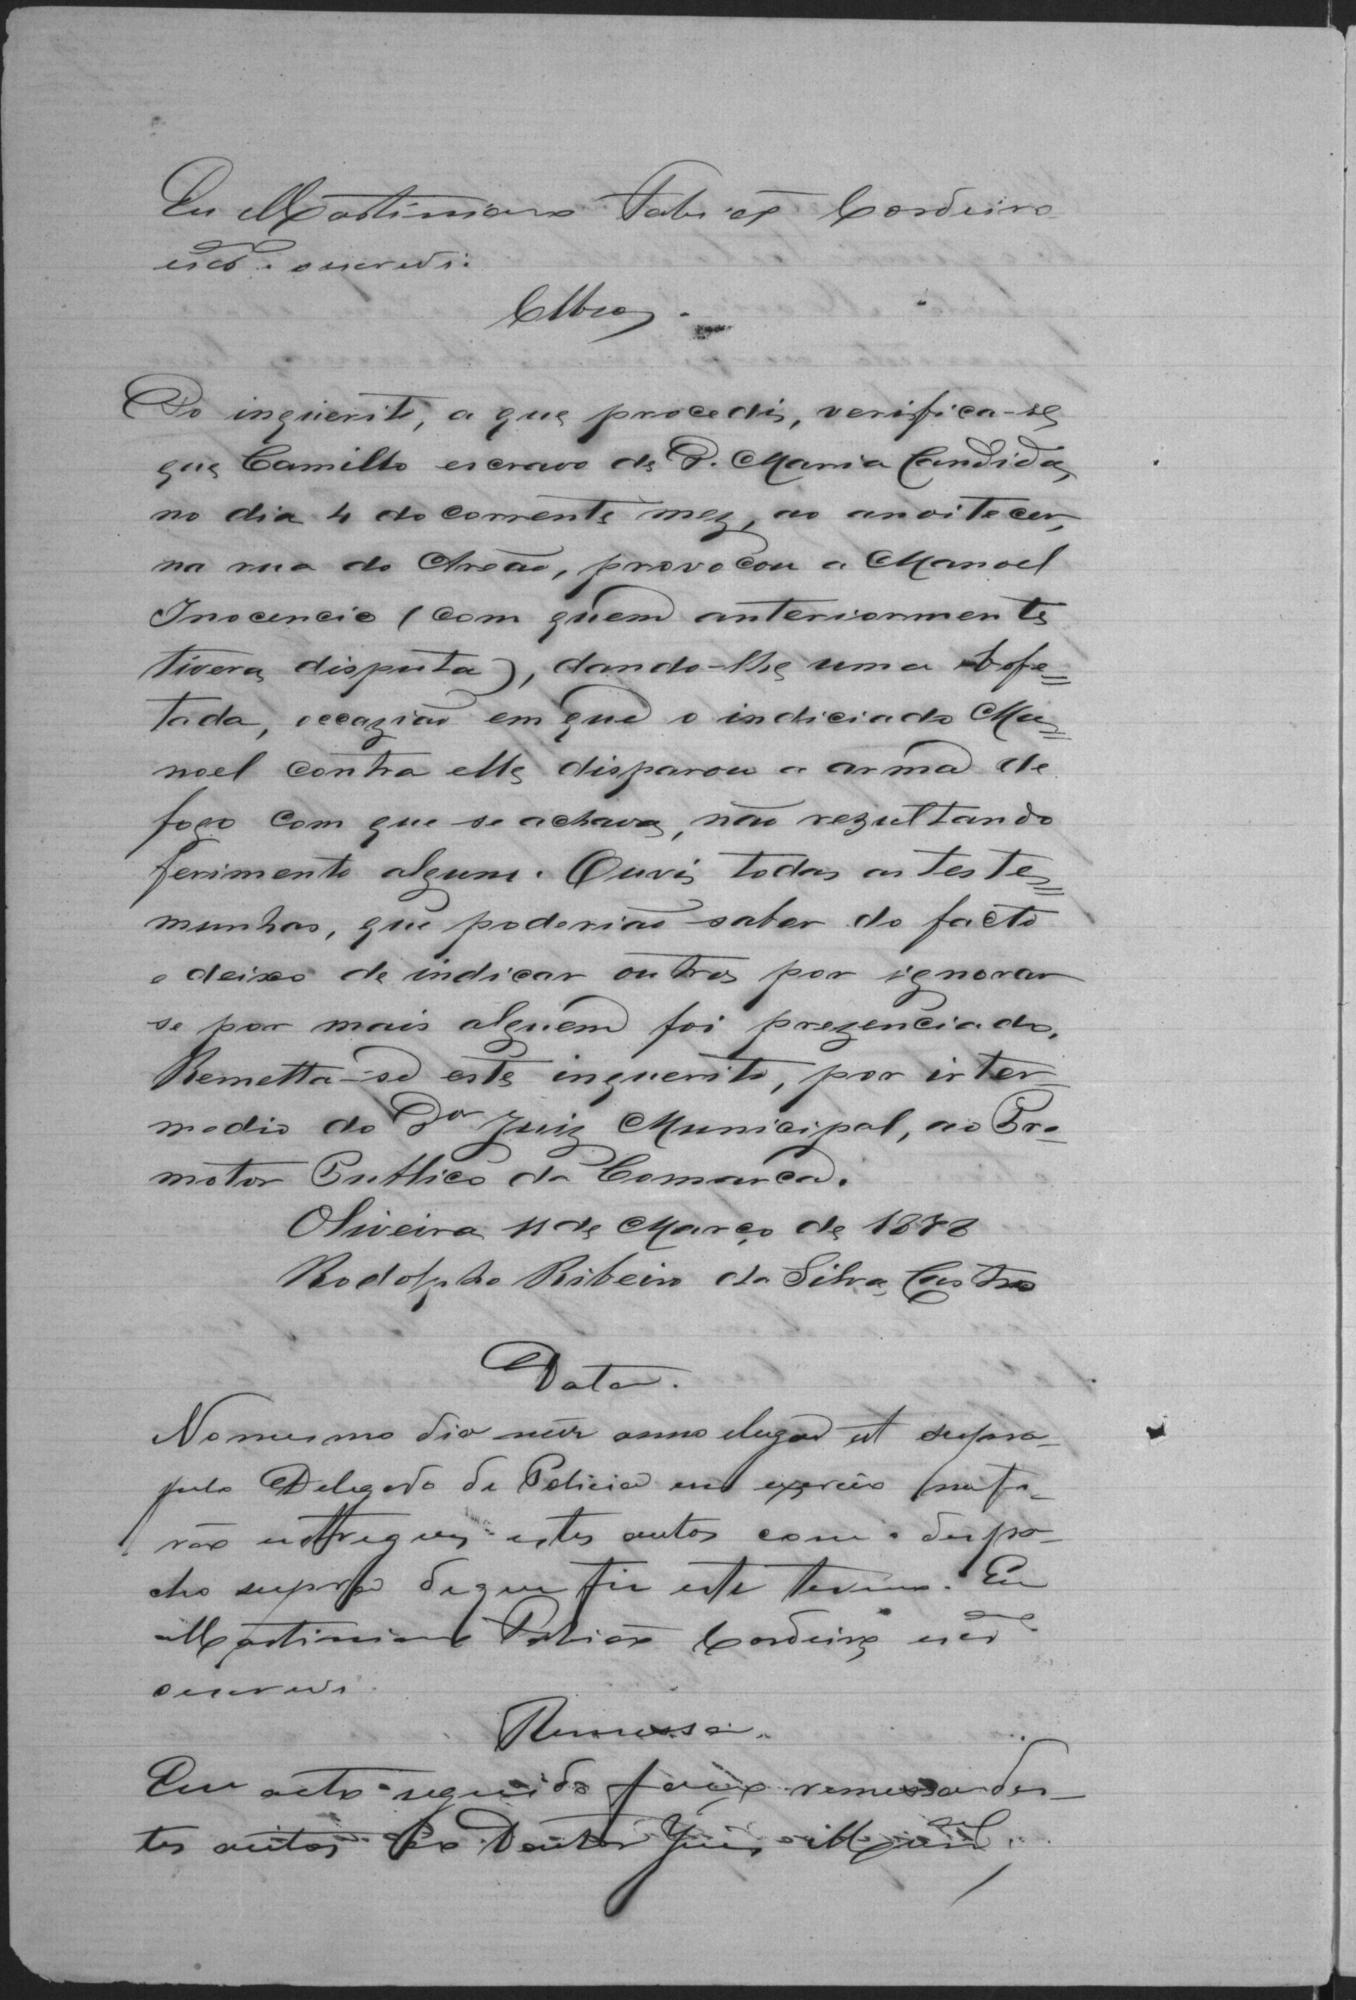 Eu Martiniano Fabião Cordeiro
escº escrevi.
Clhos.
Do inquerito, a que procedi, verifica-se
que Camillo escravo de D. Maria Candida,
no dia 4 do corrente mez, ao anoitecer,
na rua do Areão, provocou a Manoel
Inocencio (com quem anteriormente
tivera disputa), dando-lhe uma bofe=
tada, occazião em que o indiciado Ma=
noel contra elle disparou a arma de
fogo com que se achava, não rezultando
ferimento algum. Ouvi todas as teste=
munhas, que poderião saber do facto
e deixo de indicar outras por ignorar
se por mais alguem foi prezenciado.
Remetta-se este inquerito, por inter-
medio do Dor Juiz Municipal, ao Pro-
motor Publico da Comarca.
Oliveira 11 de Março de 1878
Rodolpho Ribeiro da Silva Castro
Data.
No mesmo dia mez anno e lugar ut supra
pelo Delegado de Policia em exercicio me fo-
rão entregues estes autos com o despa-
cho supra de que fiz este termo. Eu
Martiniano Fabião Cordeiro escº
escrevi.
Remessa.
Em acto seguido faço remessa des-
tes autos ao Doutor Juiz Mpal.